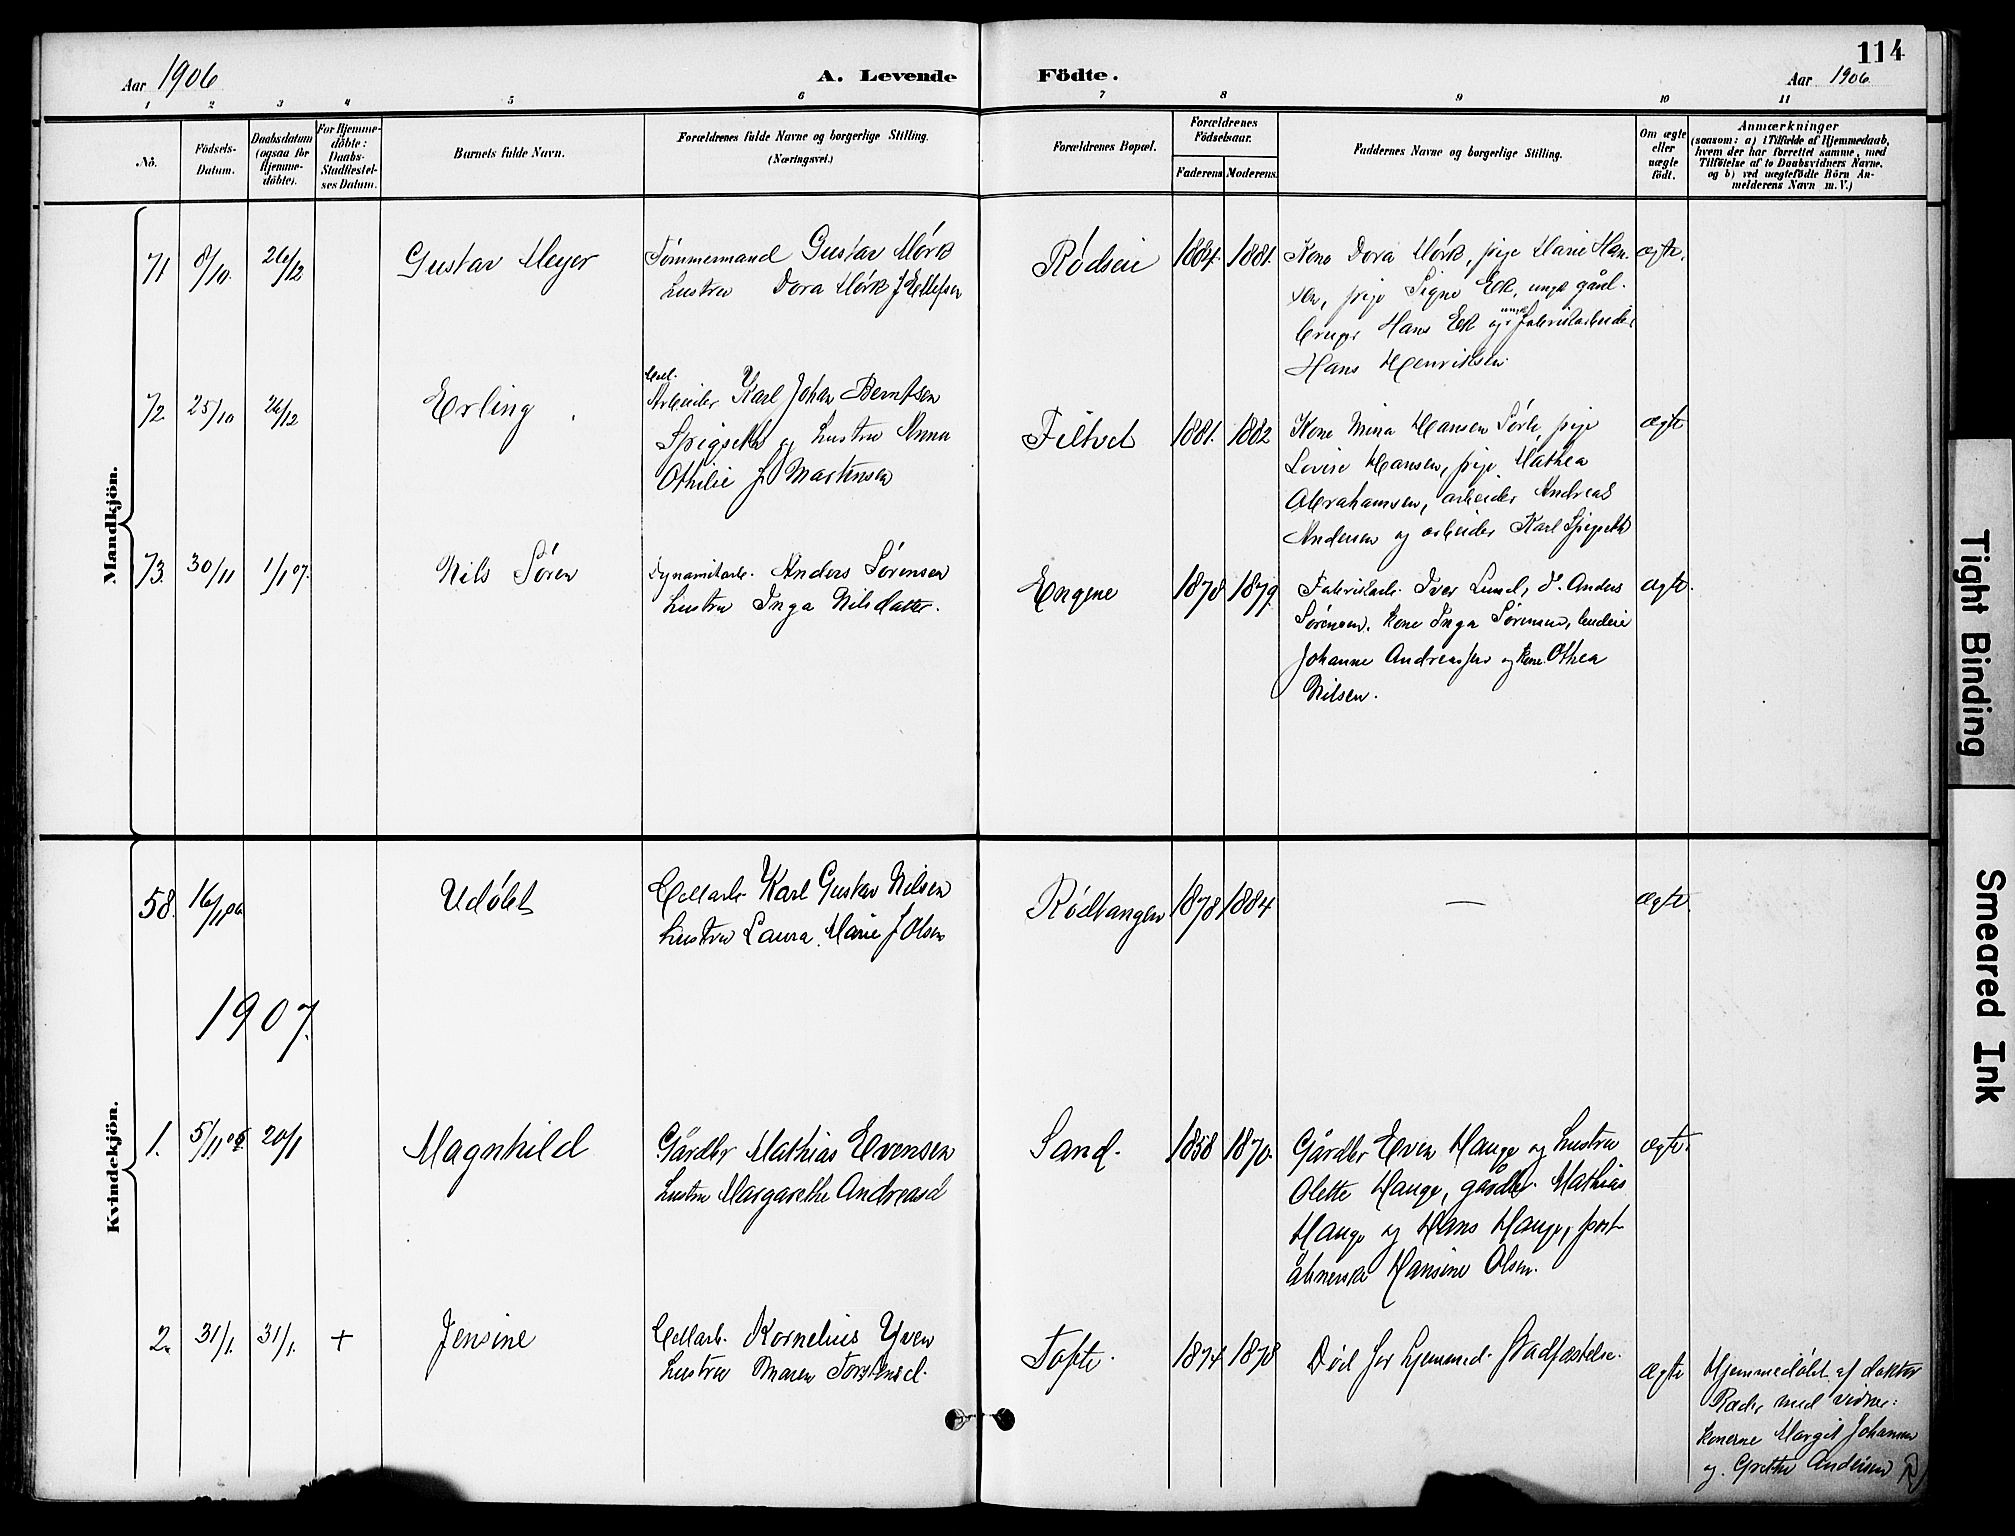 114
Aar 1906
A. Levende Födte.
Aar 1906.
1 2 3 4 5 6 7 8 9 10 11
No.
Födsels-
Datum.
Daabsdatum
(ogsaa for
Hjemme-
döbte).
For Hjemme-
döbte:
Daabs-
Stadfestel-
ses Datum.
Barnets fulde Navn.
Forældrenes fulde Navne og borgerlige Stilling.
(Næringsvei.)
Forældrenes Bopæl.
Forældrenes
Födselsaar.
Faderens
Moderens.
Faddernes Navne og borgerlige Stilling.
Om ægte
eller
uægte
födt.
Anmærkninger
(saasom: a) i Tilfælde af Hjemmedaab,
hvem der har forrettet samme, med
Tilföielse af to Daabsvidners Navne.
og b) ved uægtefödte Börn An-
melderens Navn m. V.)
Mandkjön.
71 8/10. 26/12
Gustav Meyer
Tømmermand Gustav Mørk
hustru Dora Mørk f Ellefsen
Rødseie
1884. 1881.
Kone Dora Mørk, pige Marie Han-
sen, pige Signe Ek, ungk gård-
bruger Hans Ek og ungk Fabrikarbeider
Hans Henriksen.
ægte.
72 25/10 26/12
Erling
Cel.
Arbeider Karl Johan Berntsen
Spigseth og hustru Anna
Othilie f Martinsen
Filtvet
1881. 1882
Kone Mina Hansen Sørli, pige
Lovise Hansen, pige Mathea
Abrahamsen, arbeider Andreas
Andersen og arbeider Karl Spigseth
ægte
73. 30/11 1/1 07.
Nils Søren
Dynamitarb. Anders Sørensen
hustru Inga Nilsdatter.
Engene
1878 1879.
Fabrikarb. Iver Lund, d. Anders
Sørensen. kone Inga Sørensen, budeie
Johanne Andreassen og kone Othea
Nilsen.
ægte.
Kvindekjön.
58. 16/1 06
Udøbt
Cellarb. Karl Gustav Nilsen
hustru Laura Marie f Olsen
Rødtangen
1878 1884
—
ægte.
1907.
1. 5/11 06 20/1
Magnhild
Gårdbr Mathias Evensen
hustru Margarethe Andreasd
Sand.
1858 1870.
Gårdbr Even Hauge og hustru
Olette Hauge, gårdbr. Mathias
Hauge og Hans Hauge, post-
åbnerske Hansine Olsen.
ægte.
2. 31/1. 31/1. +
Jensine
Cellarb. Kornelius Yven
hustru Maren Torstensd.
Tofte.
1874 1878
Død før hjemmed. Stadfæstelse.
ægte
Hjemmedøbt af doktor
Rade med vidner:
konerne Margit Johansen
og Grethe Andersen
Tight Binding
Smeared Ink